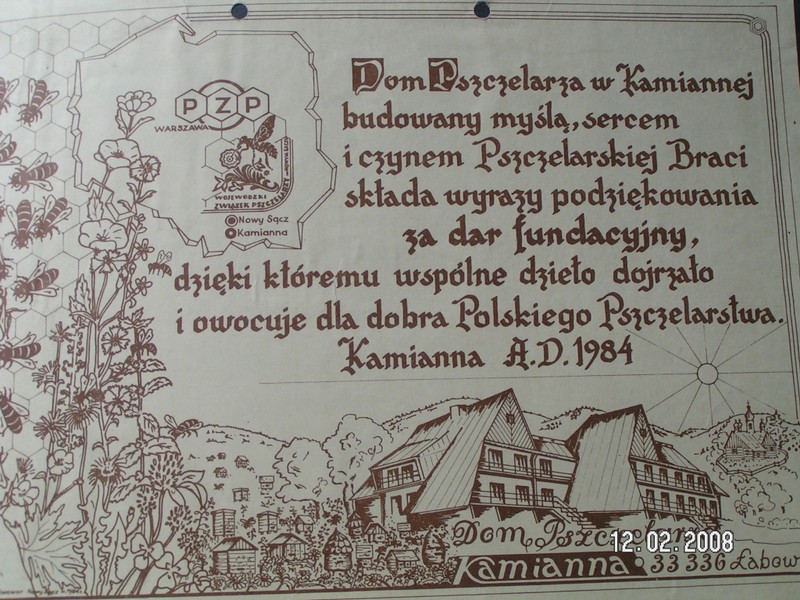 PZP
WARSZAWA
WOJEWÓDZKI
ZWIĄZEK PSZCZELARZY
Nowy Sącz
Kamianna
Dom Pszczelarza w Kamiannej
budowany myślą, sercem
i czynem Pszczelarskiej Braci
składa wyrazy podziękowania
za dar fundacyjny,
dzięki któremu wspólne dzieło dojrzało
i owocuje dla dobra Polskiego Pszczelarstwa.
Kamianna A.D. 1984
Dom Pszczelarza
Kamianna • 33 336 Łabow
12.02.2008